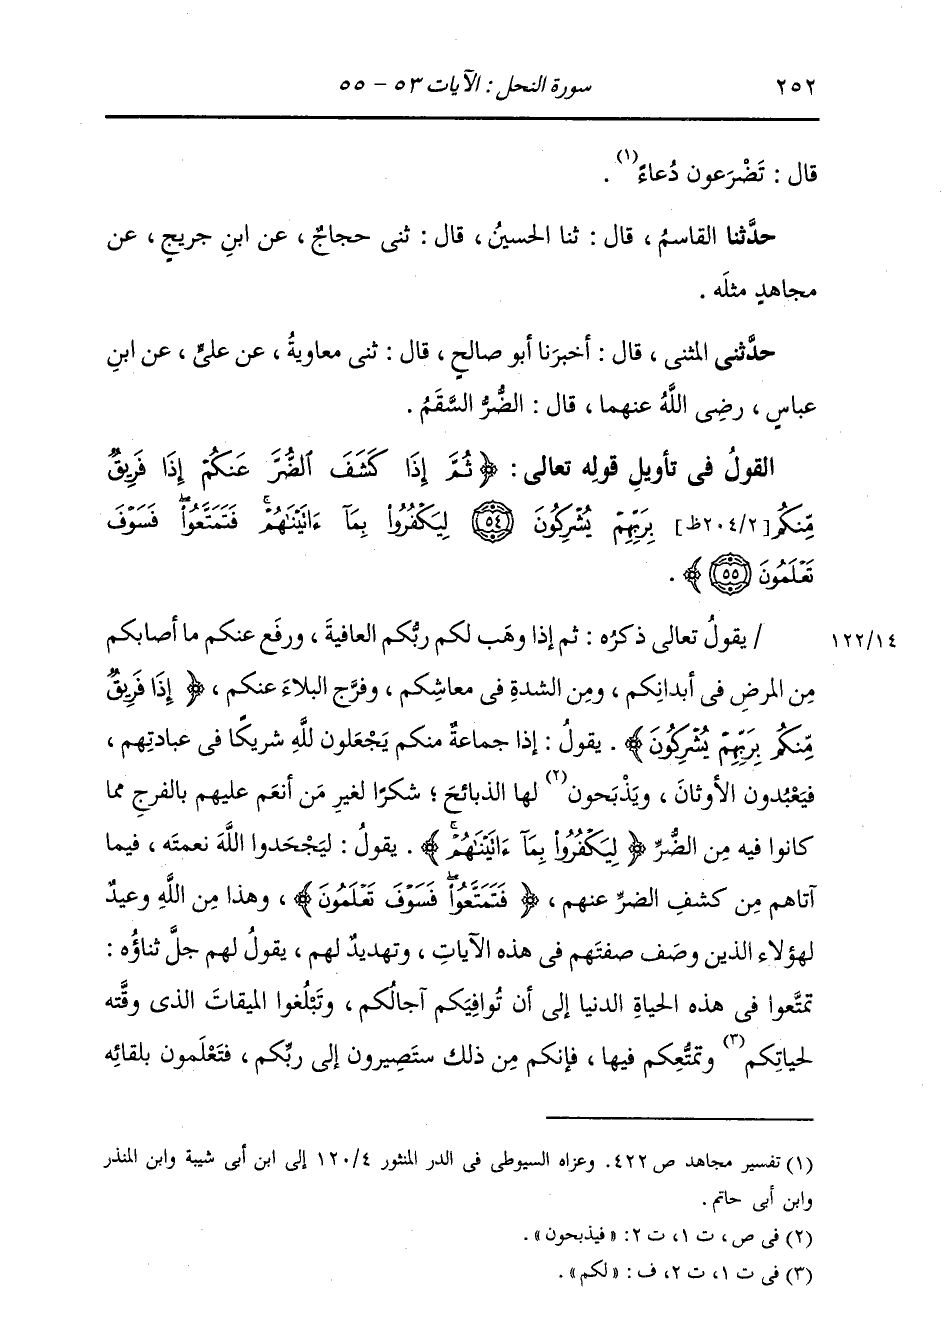 ٢٥٢ سورة النحل : الآيات ٥٣ - ٥٥
قال : تَضْرَعون دُعاءً(١) .
حدَّثنا القاسمُ ، قال : ثنا الحسينُ ، قال : ثنى حجاجٌ ، عن ابنِ جريجٍ ، عن
مجاهدٍ مثلَه .
حدَّثنى المثنى ، قال : أخبرَنا أبو صالحٍ ، قال : ثنى معاويةُ ، عن علىٍّ ، عن ابنِ
عباسٍ ، رضِى اللَّهُ عنهما ، قال : الضُّرُّ السَّقَمُ .
القولُ فى تأويلِ قولِه تعالى : ﴿ ثُمَّ إِذَا كَشَفَ ٱلضُّرَّ عَنكُمْ إِذَا فَرِيقٌ
مِّنكُم [٢٠٤/٢ظ] بِرَبِّهِمْ يُشْرِكُونَ ﴿٥٤﴾ لِيَكْفُرُواْ بِمَآ ءَاتَيْنَٰهُمْۚ فَتَمَتَّعُواْۖ فَسَوْفَ
تَعْلَمُونَ ﴿٥٥﴾ ﴾ .
١٢٢/١٤ / يقولُ تعالى ذكرُه : ثم إذا وهَب لكم ربُّكم العافيةَ ، ورفَع عنكم ما أصابكم
مِن المرضِ فى أبدانِكم ، ومِن الشدةِ فى معاشِكم ، وفرَّج البلاءَ عنكم ، ﴿ إِذَا فَرِيقٌ
مِّنكُم بِرَبِّهِمْ يُشْرِكُونَ ﴾ . يقولُ : إذا جماعةٌ منكم يَجْعَلون للَّهِ شريكًا فى عبادتِهم ،
فيَعْبُدون الأوثانَ ، ويَذْبَحون(٢) لها الذبائحَ ؛ شكرًا لغيرِ مَن أنعَم عليهم بالفرجِ مما
كانوا فيه مِن الضُّرِّ ﴿ لِيَكْفُرُواْ بِمَآ ءَاتَيْنَٰهُمْۚ ﴾ . يقولُ : ليَجْحَدوا اللَّهَ نعمتَه ، فيما
آتاهم مِن كشفِ الضرِّ عنهم ، ﴿ فَتَمَتَّعُواْۖ فَسَوْفَ تَعْلَمُونَ ﴾ ، وهذا مِن اللَّهِ وعيدٌ
لهؤلاء الذين وصَف صفتَهم فى هذه الآياتِ ، وتهديدٌ لهم ، يقولُ لهم جلَّ ثناؤُه :
تمتَّعوا فى هذه الحياةِ الدنيا إلى أن تُوافِيَكم آجالُكم ، وتَبْلُغوا الميقاتَ الذى وقَّته
لحياتِكم(٣) وتمتُّعِكم فيها ، فإنكم مِن ذلك ستَصِيرون إلى ربِّكم ، فتَعْلَمون بلقائِه
(١) تفسير مجاهد ص ٤٢٢. وعزاه السيوطى فى الدر المنثور ١٢٠/٤ إلى ابن أبى شيبة وابن المنذر
وابن أبى حاتم .
(٢) فى ص ، ت ١، ت ٢: « فيذبحون» .
(٣) فى ت ١، ت ٢، ف : «لكم» .